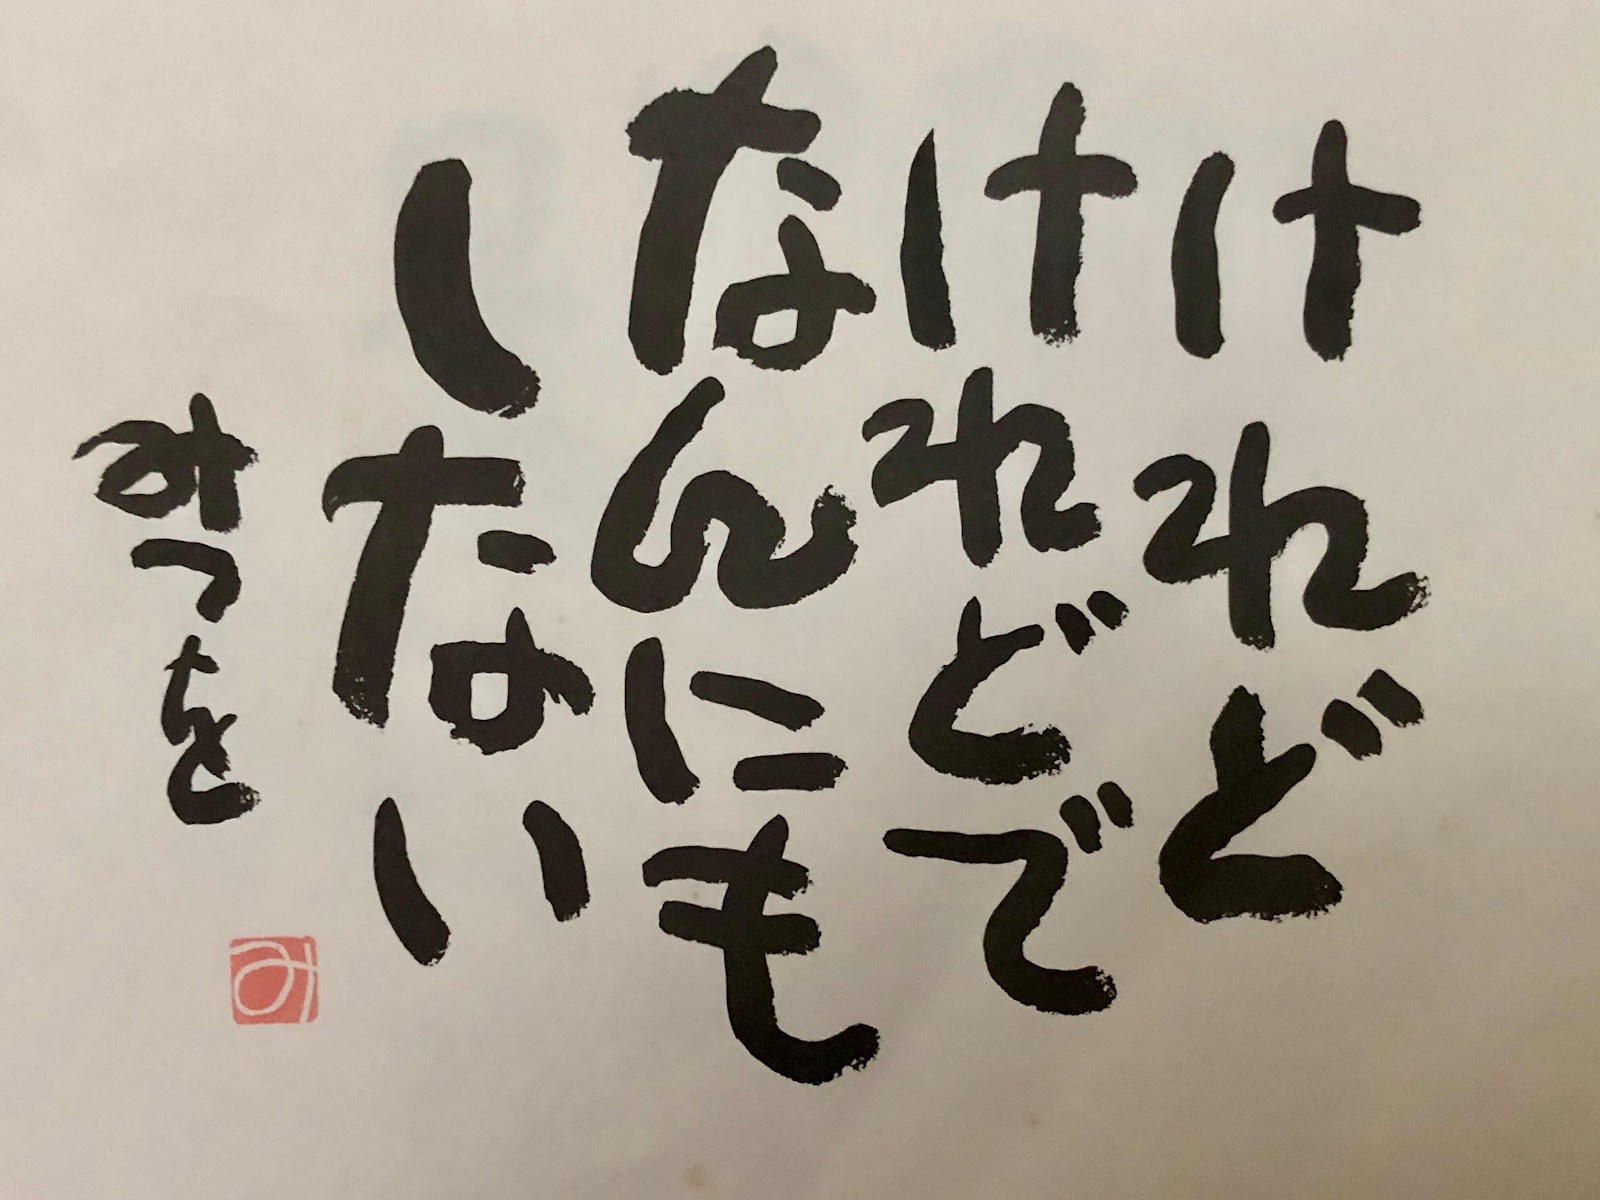 けれど
けれどで
なんにも
しない
みつを
み